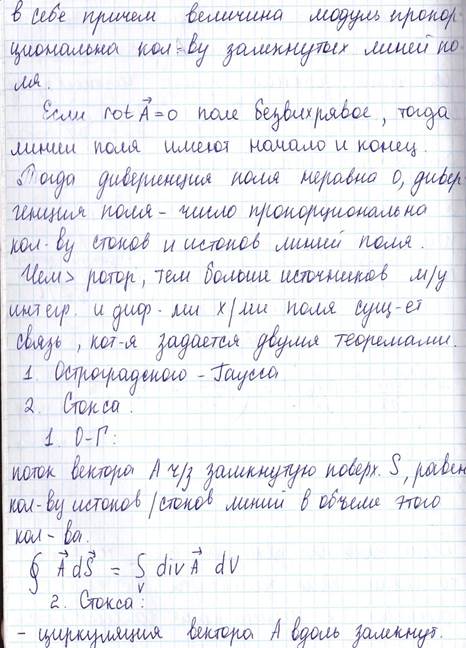 в себе причем величина модуль пропор-
циональна кол-ву замкнутых линий по-
ля.
Если rot A⃗=0 поле безвихрявое, тогда
линии поля имеют начало и конец.
Тогда дивергенция поля неравна 0, дивер-
генция поля - число пропорциональна
кол-ву стоков и истоков линий поля.
Чем > ротор, тем больше источников м/у
интегр. и диф-ми х/ми поля сущ-ет
связь, кот-я задается двумя теоремами.
1. Остроградского - Гаусса
2. Стокса.
1. О-Г:
поток вектора А ч/з замкнутую поверх. S, равен
кол-ву истоков/стоков линий в объеме этого
кол-ва.
∮ A⃗ dS⃗ = ∫ᵥ div A⃗ dV
2. Стокса:
- циркуляция вектора А вдоль замкнут.